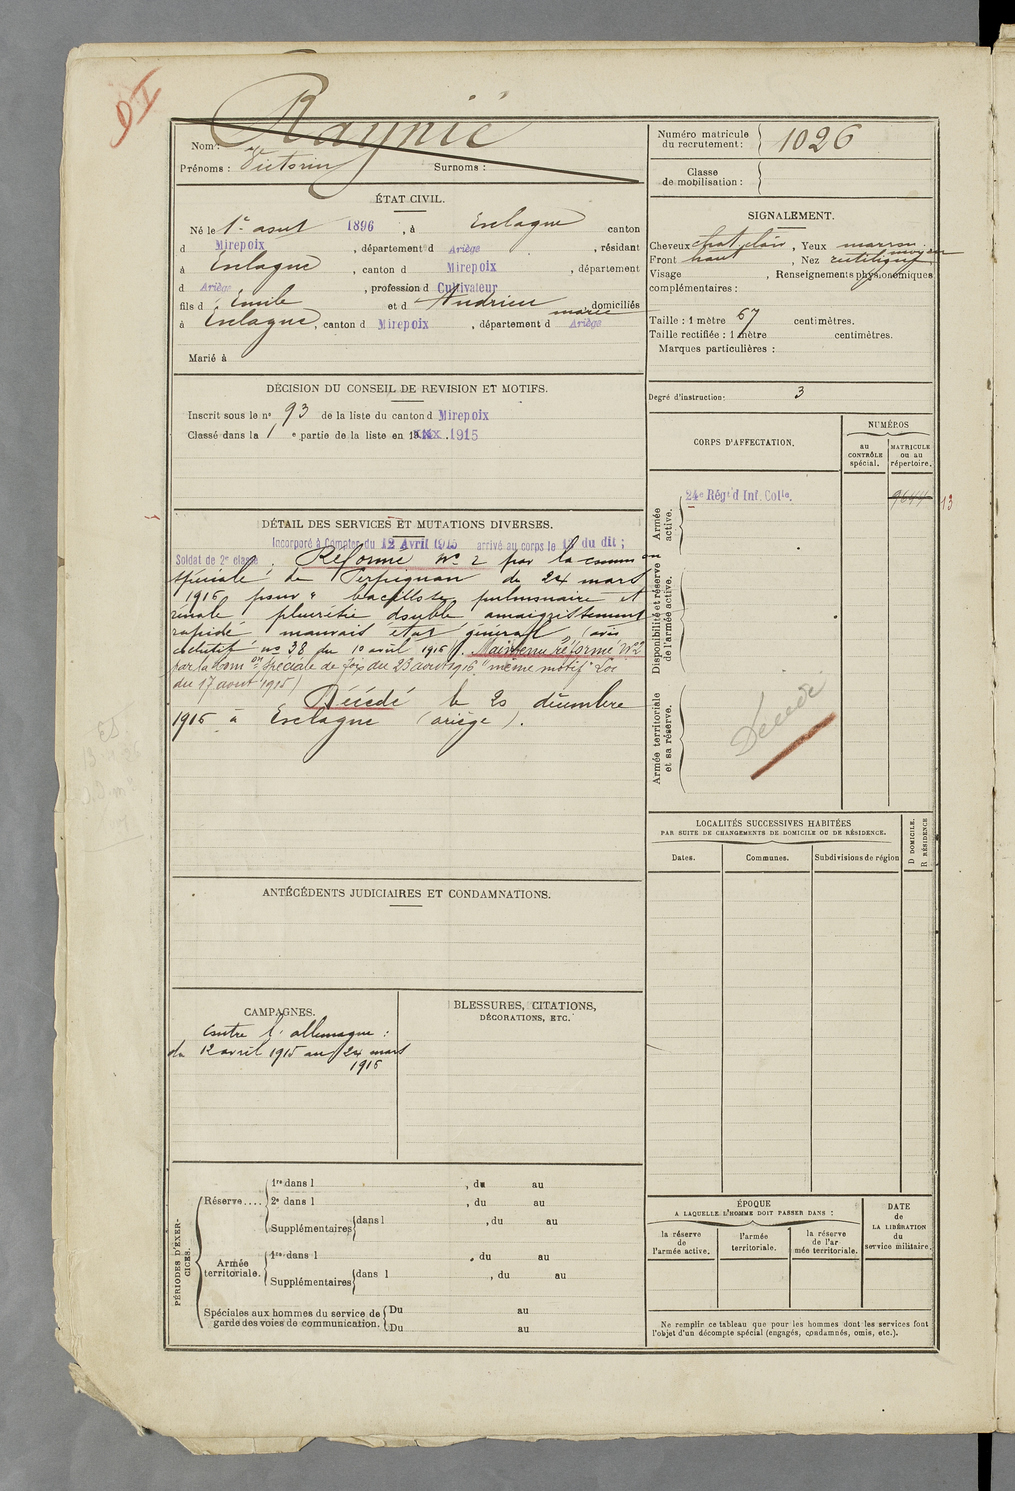 DI
Nom : Raynié
Prénoms : Victorin Surnoms :
Numéro matricule du recrutement : 1026
Classe de mobilisation :
ÉTAT CIVIL.
Né le 1er aout 1896, à Esclagne canton
d Mirepoix, département d Ariège, résidant
à Esclagne, canton d Mirepoix, département
d Ariège, profession d Cultivateur
fils d Émile et d Andrieu marie domiciliés
à Esclagne, canton d Mirepoix, département d Ariège
Marié à
SIGNALEMENT.
Cheveux chat clair, Yeux marron
Front haut, Nez rectiligne moyen
Visage , Renseignements physionomiques
complémentaires :
Taille : 1 mètre 67 centimètres.
Taille rectifiée : 1 mètre centimètres.
Marques particulières :
Degré d'instruction : 3
DÉCISION DU CONSEIL DE REVISION ET MOTIFS.
Inscrit sous le no 93 de la liste du canton d Mirepoix
Classé dans la 1 e partie de la liste en 1915
DÉTAIL DES SERVICES ET MUTATIONS DIVERSES.
Incorporé à Compter du 12 Avril 1915 arrivé au corps le 12 du dit ;
Soldat de 2e classe. Réformé No 2 par la comm on
spéciale de Perpignan du 24 mars
1916 pour " bacillose pulmonaire et
rénale, pleurésie double, amaigrissement
rapide, mauvais état général (avis
collectif no 38 du 10 avril 1916). Maintenu réformé No 2
par la Com on spéciale de Foix du 23 aout 1916 " même motif " Loi
du 17 aout 1915)
Décédé le 20 décembre
1916 à Esclagne (ariège).
CORPS D'AFFECTATION.
NUMÉROS
au CONTRÔLE spécial.
MATRICULE ou au répertoire.
Armée active.
24e Régt d'Inf. Colle.
9644
13
Disponibilité et réserve de l'armée active.
Armée territoriale et sa réserve.
Décédé
LOCALITÉS SUCCESSIVES HABITÉES
PAR SUITE DE CHANGEMENTS DE DOMICILE OU DE RÉSIDENCE.
Dates.
Communes.
Subdivisions de région
D DOMICILE.
R RÉSIDENCE
ANTÉCÉDENTS JUDICIAIRES ET CONDAMNATIONS.
CAMPAGNES.
Contre l'allemagne :
du 12 avril 1915 au 24 mars
1916
BLESSURES, CITATIONS,
DÉCORATIONS, ETC.
PÉRIODES D'EXERCICES.
Réserve....
1re dans l , du au
2e dans l , du au
Supplémentaires dans l , du au
Armée territoriale.
1re dans l , du au
Supplémentaires dans l , du au
Spéciales aux hommes du service de
garde des voies de communication.
Du au
Du au
ÉPOQUE
A LAQUELLE L'HOMME DOIT PASSER DANS :
la réserve de l'armée active.
l'armée territoriale.
la réserve de l'ar mée territoriale.
DATE de LA LIBÉRATION du service militaire.
Ne remplir ce tableau que pour les hommes dont les services font
l'objet d'un décompte spécial (engagés, condamnés, omis, etc.).